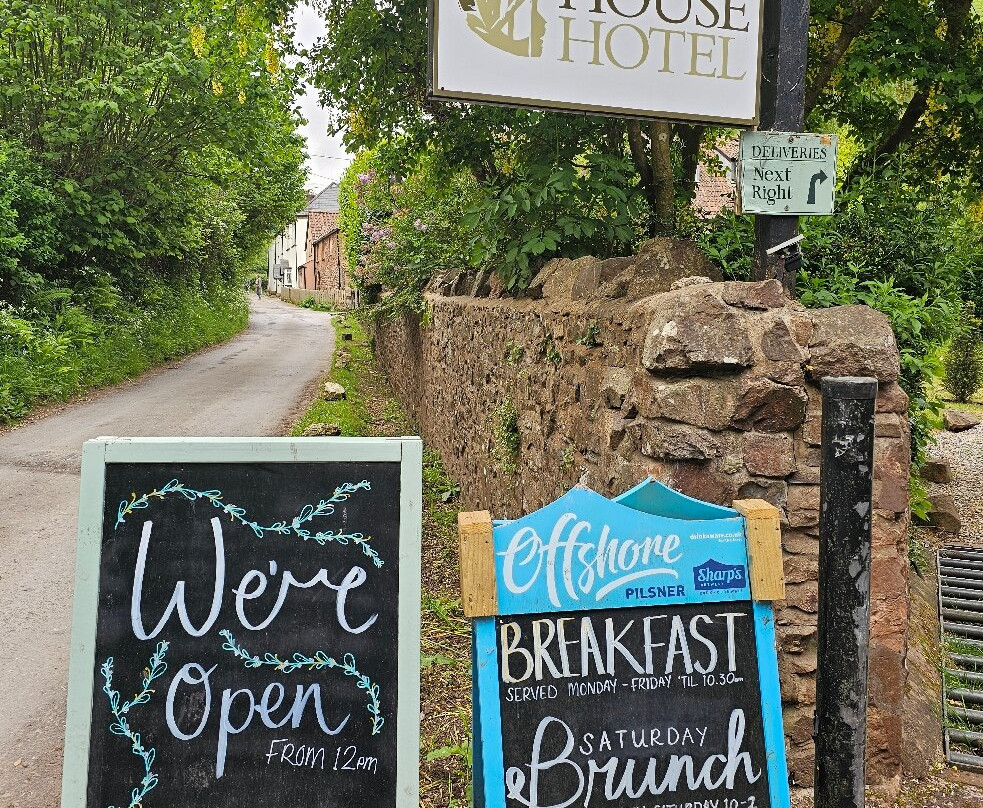 HOUSE
HOTEL
DELIVERIES
Next
Right
We're
Open
FROM 12pm
Offshore
PILSNER
drinkaware.co.uk
Sharp's
BREWERY
BREAKFAST
SERVED MONDAY - FRIDAY 'TIL 10.30am
SATURDAY
Brunch
SATURDAY 10-2